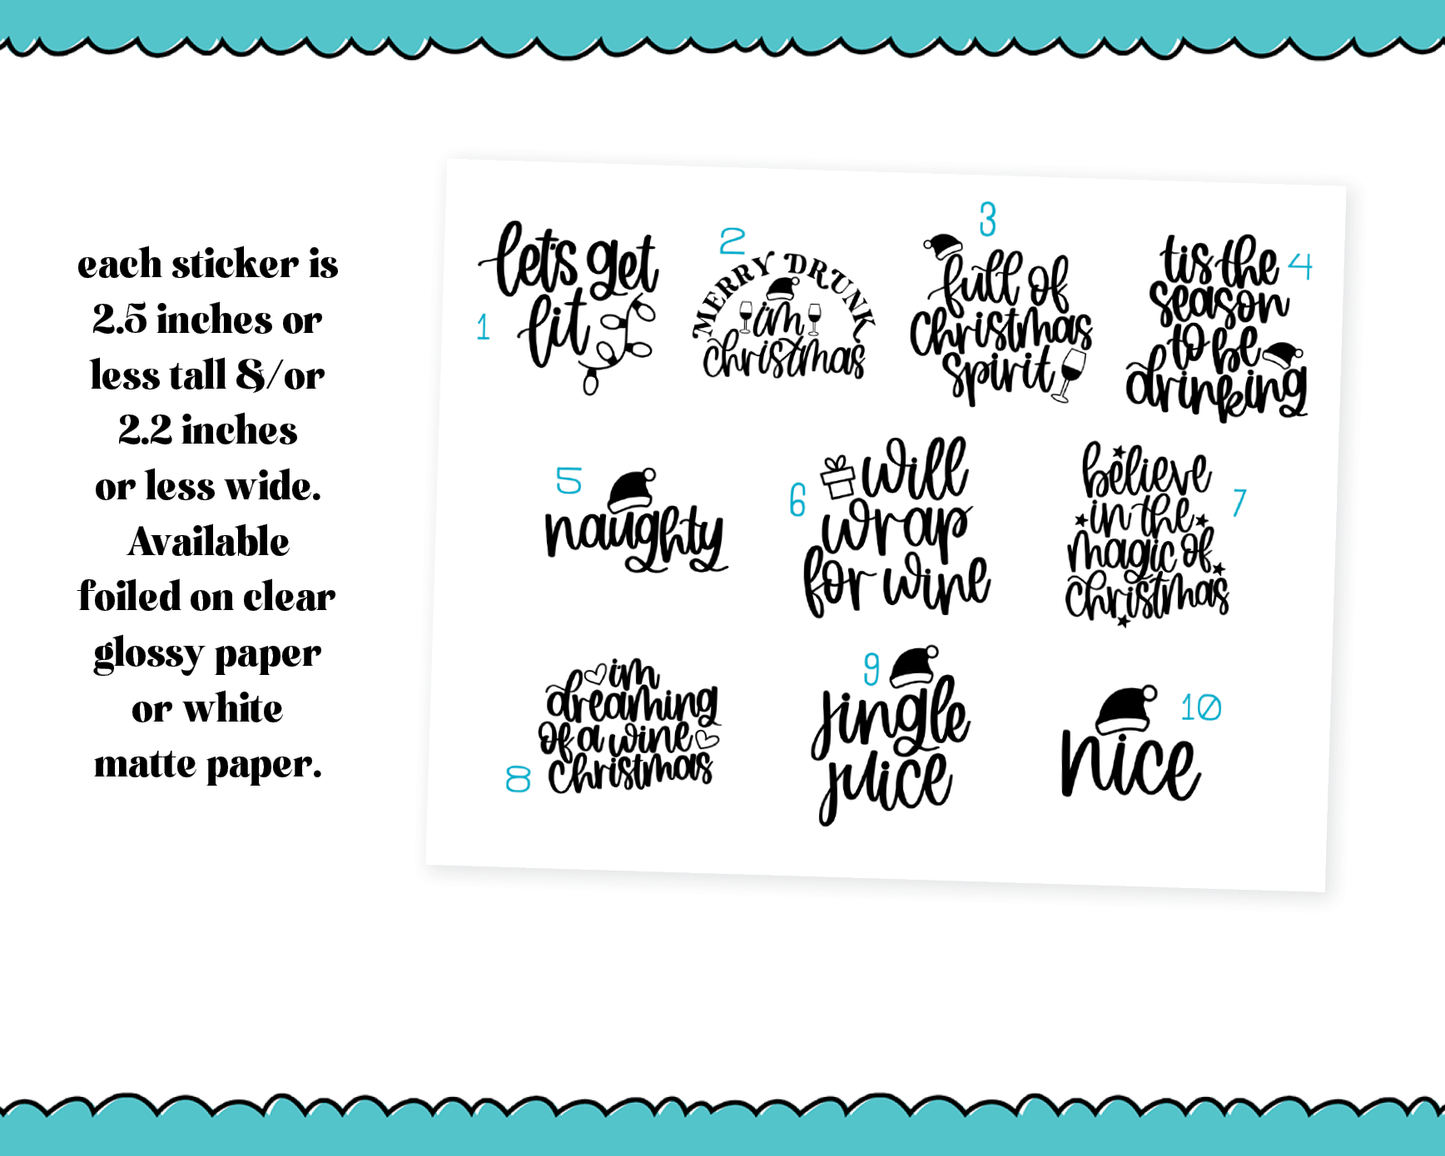 each sticker is
2.5 inches or
less tall &/or
2.2 inches
or less wide.
Available
foiled on clear
glossy paper
or white
matte paper.
1
let's get
lit
2
MERRY DRUNK
i'm
christmas
3
full of
christmas
spirit
4
tis the
season
to be
drinking
5
naughty
6
will
wrap
for wine
7
believe
in the
magic of
christmas
8
i'm
dreaming
of a wine
christmas
9
jingle
juice
10
nice